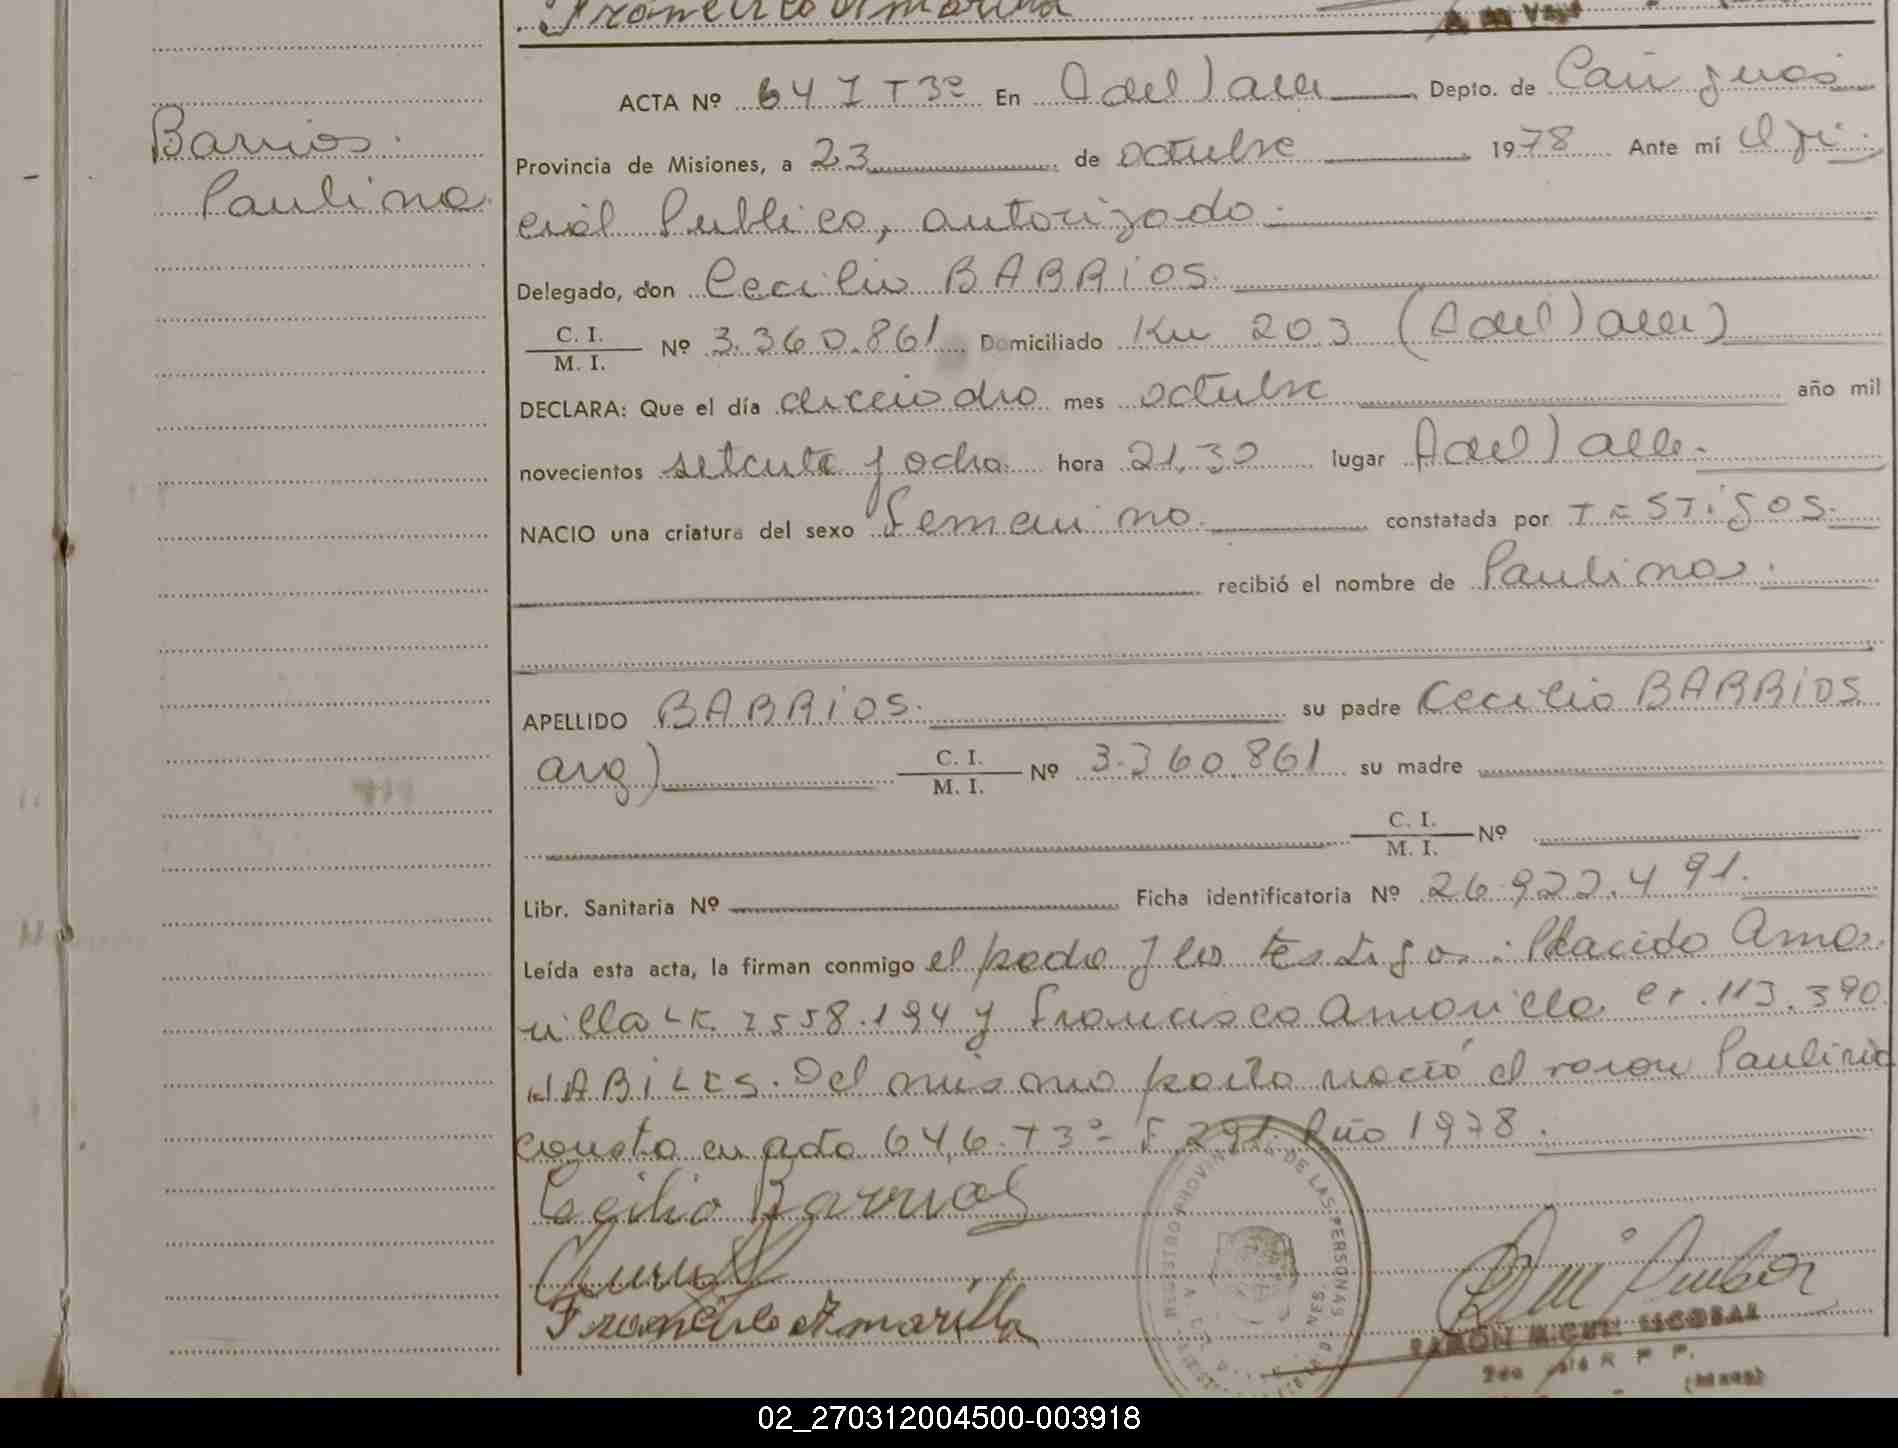 Francisco Amarilla
Barrios.
Paulina.
ACTA Nº 647 T3º En A del Valle Depto. de Cainguas
Provincia de Misiones, a 23 de octubre 1978 Ante mí Ofi-
cial Publico, autorizado.
Delegado, don Cecilio BARRIOS.
C. I. / M. I. Nº 3.360.861 Domiciliado Km 203 (A del Valle)
DECLARA: Que el día dieciocho mes octubre año mil
novecientos setenta y ocho hora 21,30 lugar A del Valle.
NACIO una criatura del sexo femenino. constatada por TESTigos.
recibió el nombre de Paulina.
APELLIDO BARRiOS. su padre Cecilio BARRiOS
arg) C. I. / M. I. Nº 3.360.861 su madre
C. I. / M. I. Nº
Libr. Sanitaria Nº Ficha identificatoria Nº 26.922.491.
Leída esta acta, la firman conmigo el padre y los testigos: Placido Ama-
rilla LE. 7558.194 y Francisco Amarilla 113.390
HABILES. Del mismo parto nació el varon Paulino
consta en acta 646. T3º- F 291. Año 1978.
Cecilio Barrios
Francisco Amarilla
REGISTRO PROVINCIAL DE LAS PERSONAS
RAMON MIGUEL ESCOBAR
02_270312004500-003918